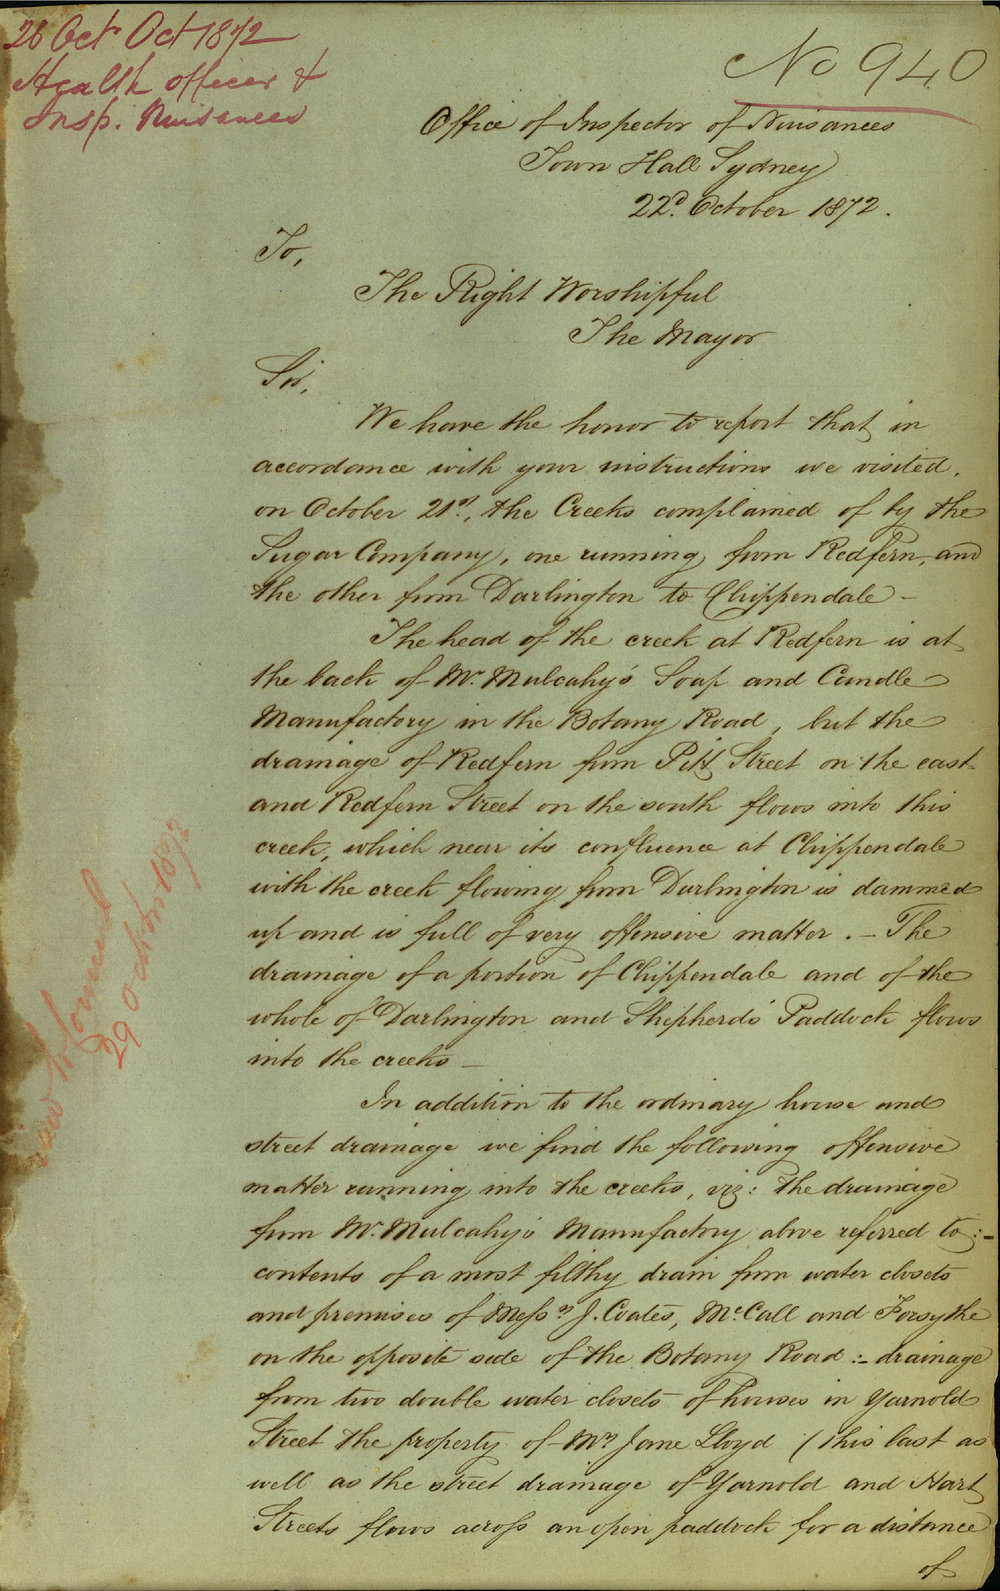 26 Oct Oct 1872
Health officer &
Insp. Nuisances
No 940
Office of Inspector of Nuisances
Town Hall Sydney
22d. October 1872.
To,
The Right Worshipful
The Mayor
Sir,
We have the honor to report that in
accordance with your instructions we visited,
on October 21st, the Creeks complained of by the
Sugar Company, one running from Redfern, and
the other from Darlington to Chippendale –
The head of the creek at Redfern is at
the back of Mr. Mulcahy's Soap and Candle
Manufactory in the Botany Road, but the
drainage of Redfern from Pitt Street on the east
and Redfern Street on the south flows into this
creek, which near its confluence at Chippendale
with the creek flowing from Darlington is dammed
up and is full of very offensive matter. – The
drainage of a portion of Chippendale and of the
whole of Darlington and Shepherd's Paddock flows
into the creeks –
In addition to the ordinary house and
street drainage we find the following offensive
matter running into the creeks, viz: the drainage
from Mr. Mulcahy's Manufactory above referred to:–
contents of a most filthy drain from water closets
and premises of Messrs J. Coates, McCall and Forsythe
on the opposite side of the Botany Road:– drainage
from two double water closets of houses in Yarnold
Street the property of Mrs Jane Lloyd (this last as
well as the street drainage of Yarnold and Hart
Streets flows across an open paddock for a distance
of
29 October 1872